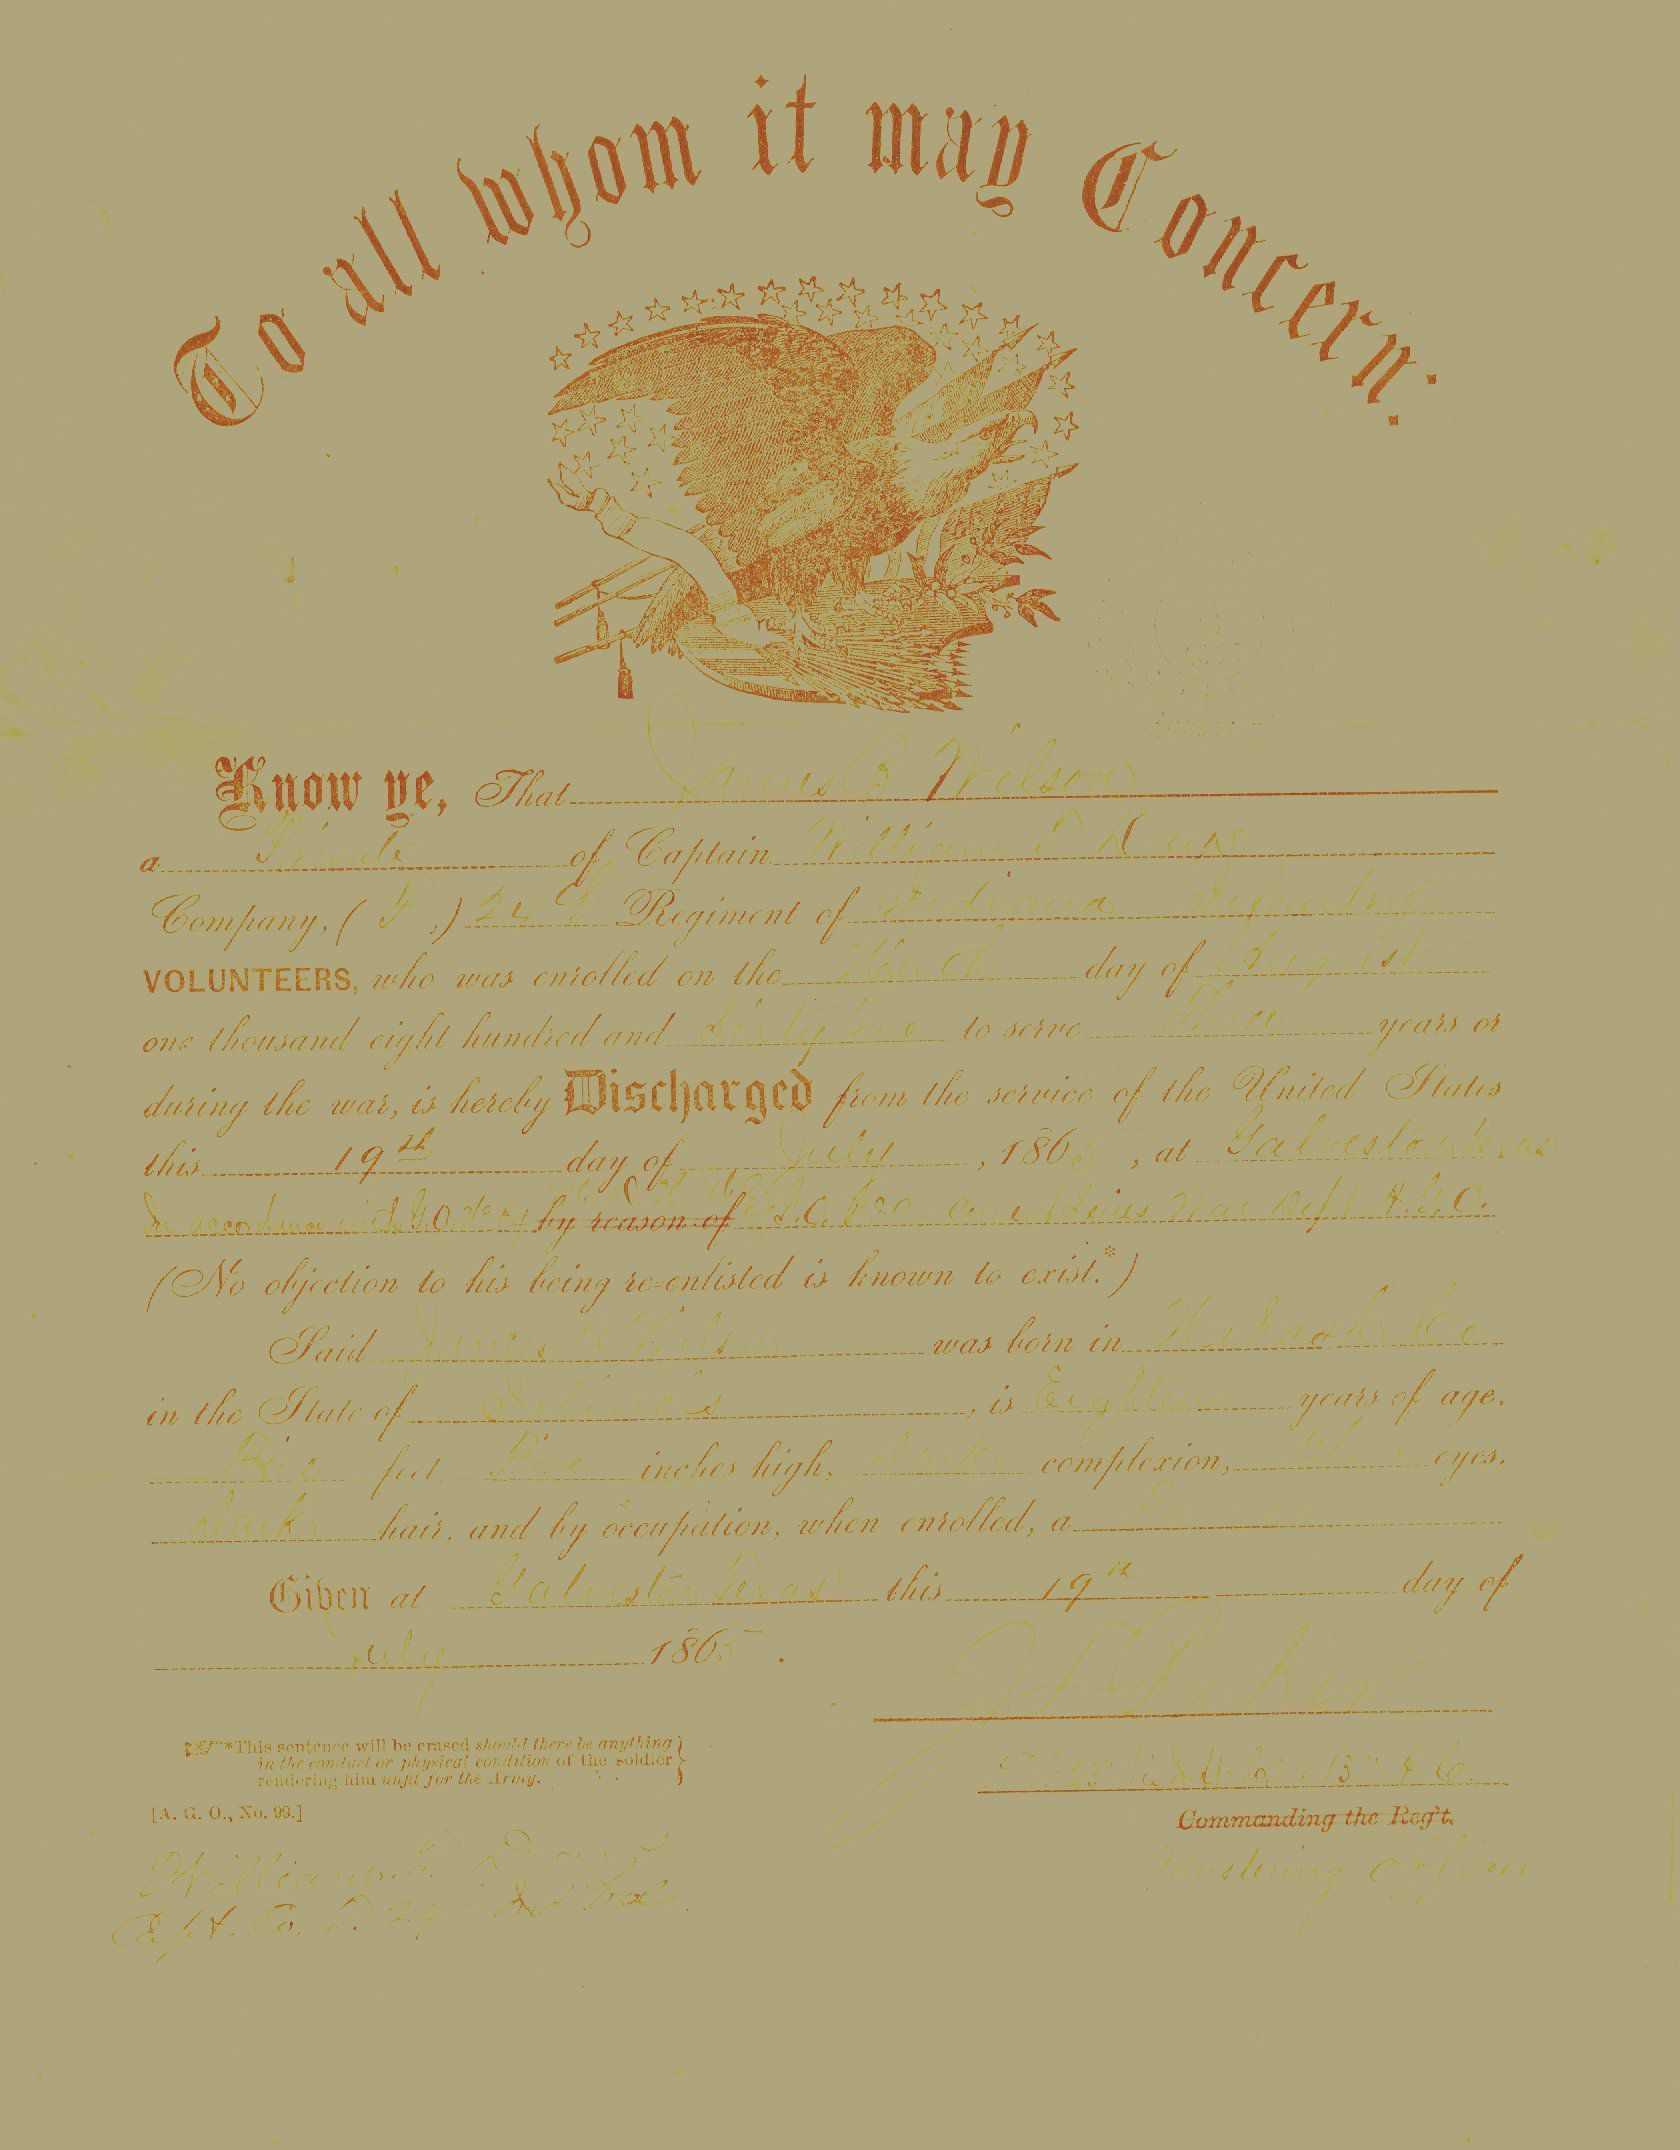 To all whom it may Concern:
Know ye, That James B Wilson
a Private of Captain William T
Company, (F,) 24th Regiment of Indiana Infantry
VOLUNTEERS, who was enrolled on the day of August
one thousand eight hundred and Sixty Two to serve Three years or
during the war, is hereby Discharged from the service of the United States
this 19th day of July, 1865, at Galveston Texas
In accordance with G.O. No by reason of War Dept A.G.O.
(No objection to his being re-enlisted is known to exist.*)
Said James B Wilson was born in Wabash Co
in the State of Illinois, is Eighteen years of age,
Five feet Five inches high, Dark complexion, Blue eyes,
Dark hair, and by occupation, when enrolled, a Farmer
Given at Galveston Texas this 19th day of
July 1865.
*This sentence will be erased should there be anything
in the conduct or physical condition of the soldier
rendering him unfit for the Army.
[A. G. O., No. 99.]
13th A.C.
Commanding the Reg't.
Mustering Officer
William T.
Capt. Co. F. Ind Vols.